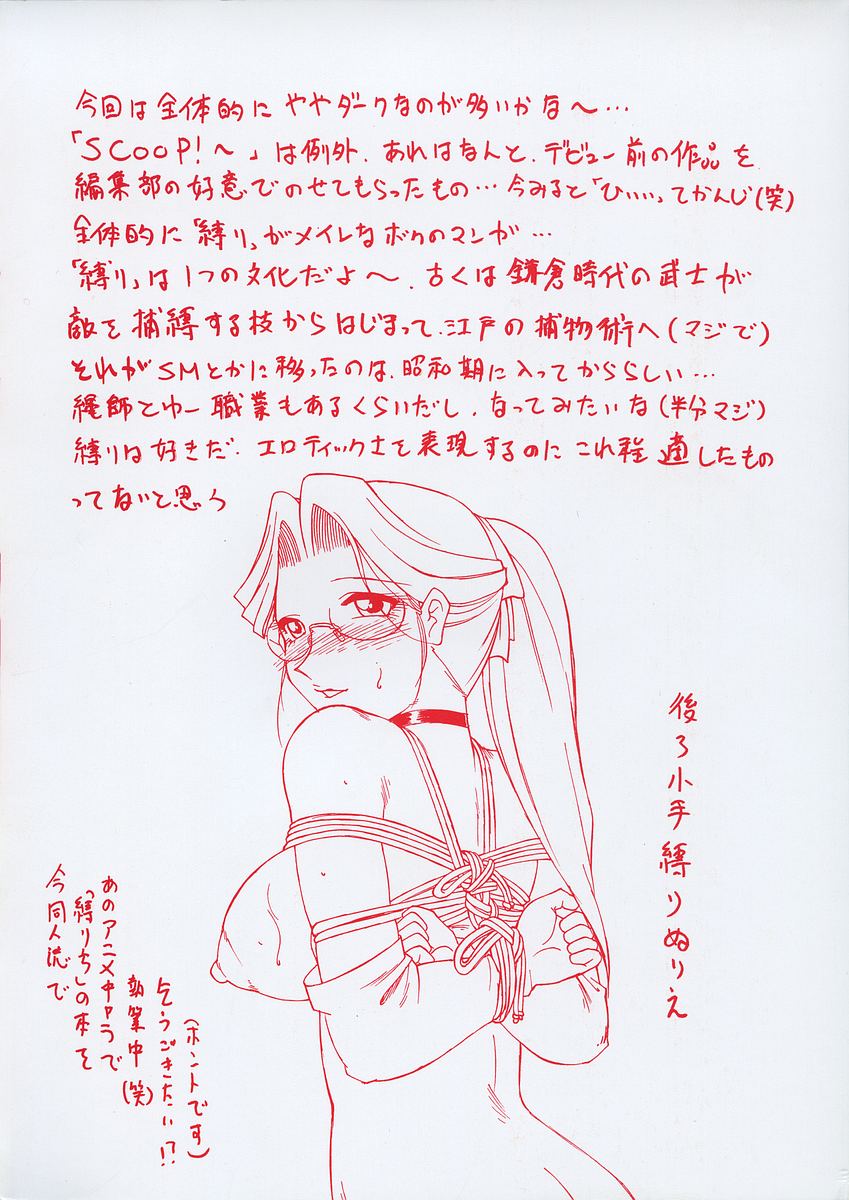 今回は全体的に ややダークなのが多いかな～…
「SCOOP!～」は例外. あれはなんと. デビュー前の作品を
編集部の好意でのせてもらったもの… 今みると「ひぃぃ」てかんじ(笑)
全体的に「縛り」がメイレなボクのマンが…
「縛り」は1つの文化だよ～. 古くは鎌倉時代の武士が
敵を捕縛する技からはじまって.江戸の捕物術へ(マジで)
それがSMとかに移ったのは.昭和期に入ってかららしい…
縄師とゆー職業もあるくらいだし. なってみたいな(半分マジ)
縛りは好きだ. エロティックさを表現するのに これ程 適したもの
ってないと思う
後ろ小手縛りぬりえ
今同人誌で
「縛りもしの本を
あのアニメキャラで
執筆中(笑)
乞うごきたい!?
(ホントです)